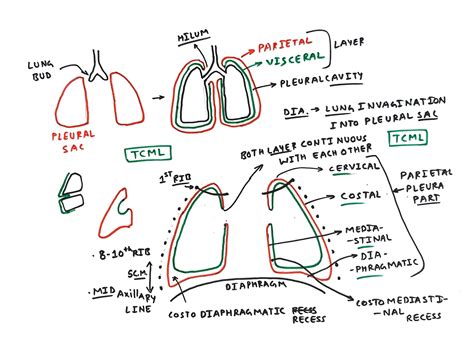 HILUM
LUNG
BUD
PARIETAL
VISCERAL
LAYER
PLEURAL CAVITY
PLEURAL
SAC
DIA. → LUNG INVAGINATION
INTO PLEURAL SAC
TCML
TCML
BOTH LAYER CONTINUOUS
WITH EACH OTHER
1ST RIB
CERVICAL
COSTAL
PARIETAL
PLEURA
PART
MEDIA-
STINAL
DIA-
PHRAGMATIC
8-10th RIB
5CM
MID Axillary
LINE
DIAPHRAGM
COSTO DIAPHRAGMATIC
RECESS
COSTOMEDIASTI-
NAL RECESS